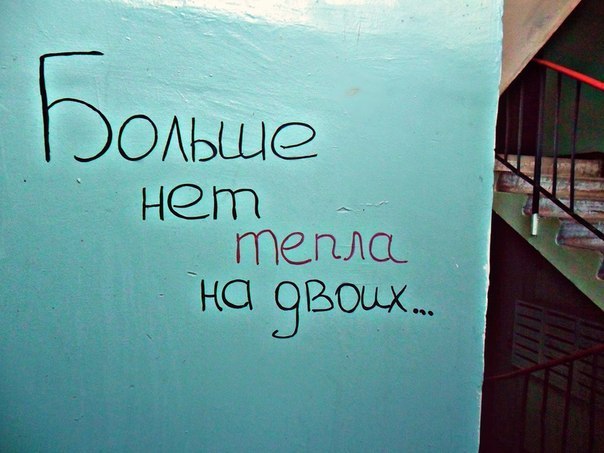 Больше
нет
тепла
на двоих...